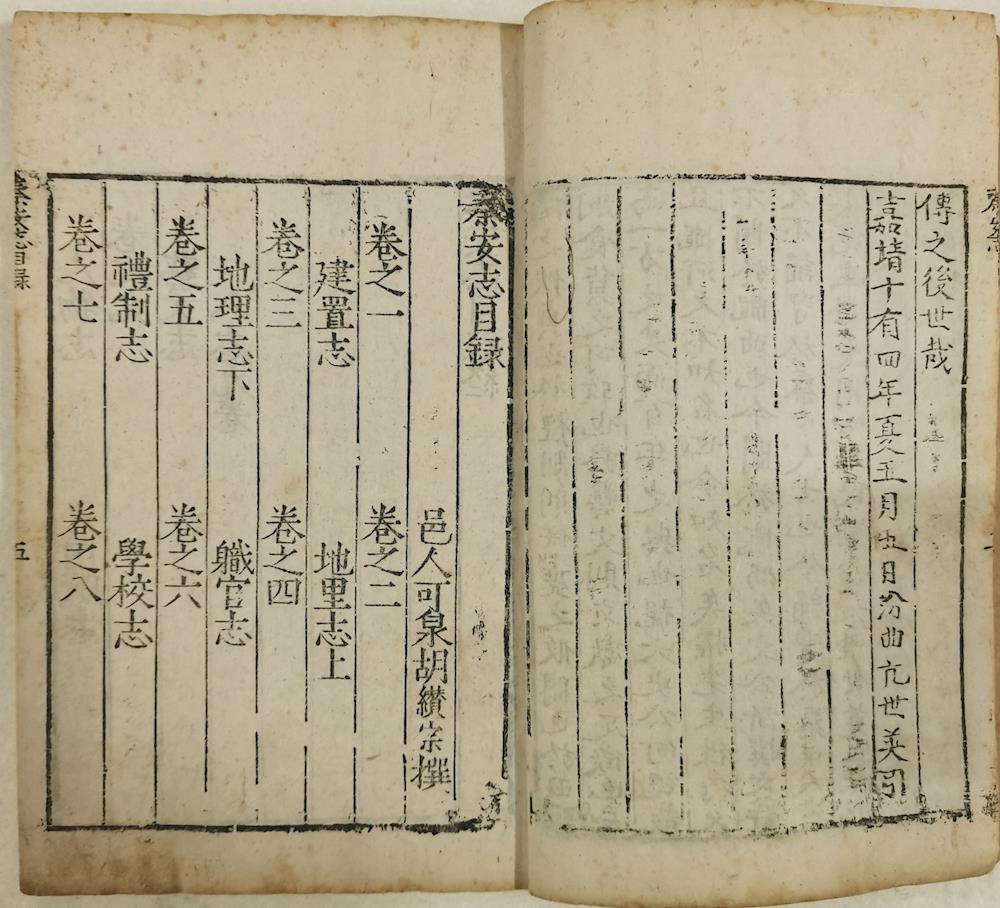 傳之後世哉
嘉靖十有四年夏五月五日汾曲亢世英引
秦安志目録
邑人可泉胡纘宗撰
卷之一 卷之二
建置志 地里志上
卷之三 卷之四
地理志下 職官志
卷之五 卷之六
禮制志 學校志
卷之七 卷之八
秦安志目録 五